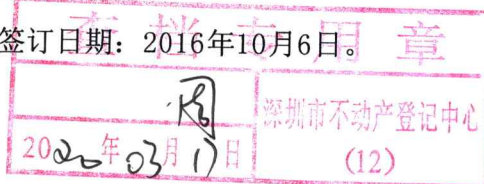 查档专用章
签订日期：2016年10月6日。
周
深圳市不动产登记中心
2020年03月17日
(12)